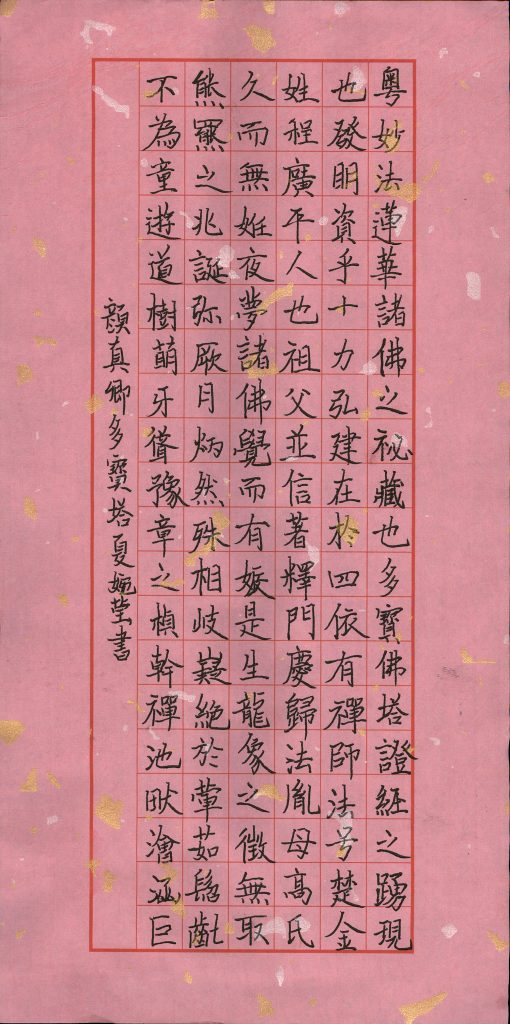 粤妙法蓮華諸佛之祕藏也多寳佛塔證經之踴現
也發明資乎十力弘建在於四依有禪師法号楚金
姓程廣平人也祖父並信著釋門慶歸法胤母高氏
久而無姙夜夢諸佛覺而有娠是生龍象之徴無取
熊羆之兆誕弥厥月炳然殊相岐嶷絶於葷茹髫齔
不為童遊道樹萌牙聳豫章之楨幹禪池畎澮涵巨
顏真卿多寳塔夏婉瑩書